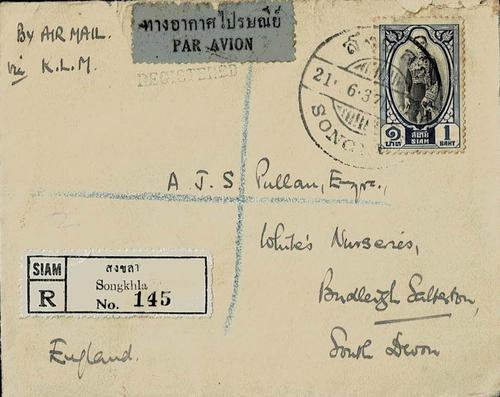 BY AIR MAIL.
via K.L.M.
ทางอากาศไปรษณีย์
PAR AVION
REGISTERED
21 6·37
SONG
๑ บาท
สยาม
SIAM
1 BAHT
A J. S Pullan, Esqre.,
White's Nurseries,
Budleigh Salterton,
South Devon
England.
SIAM
R
สงขลา
Songkhla
No. 145